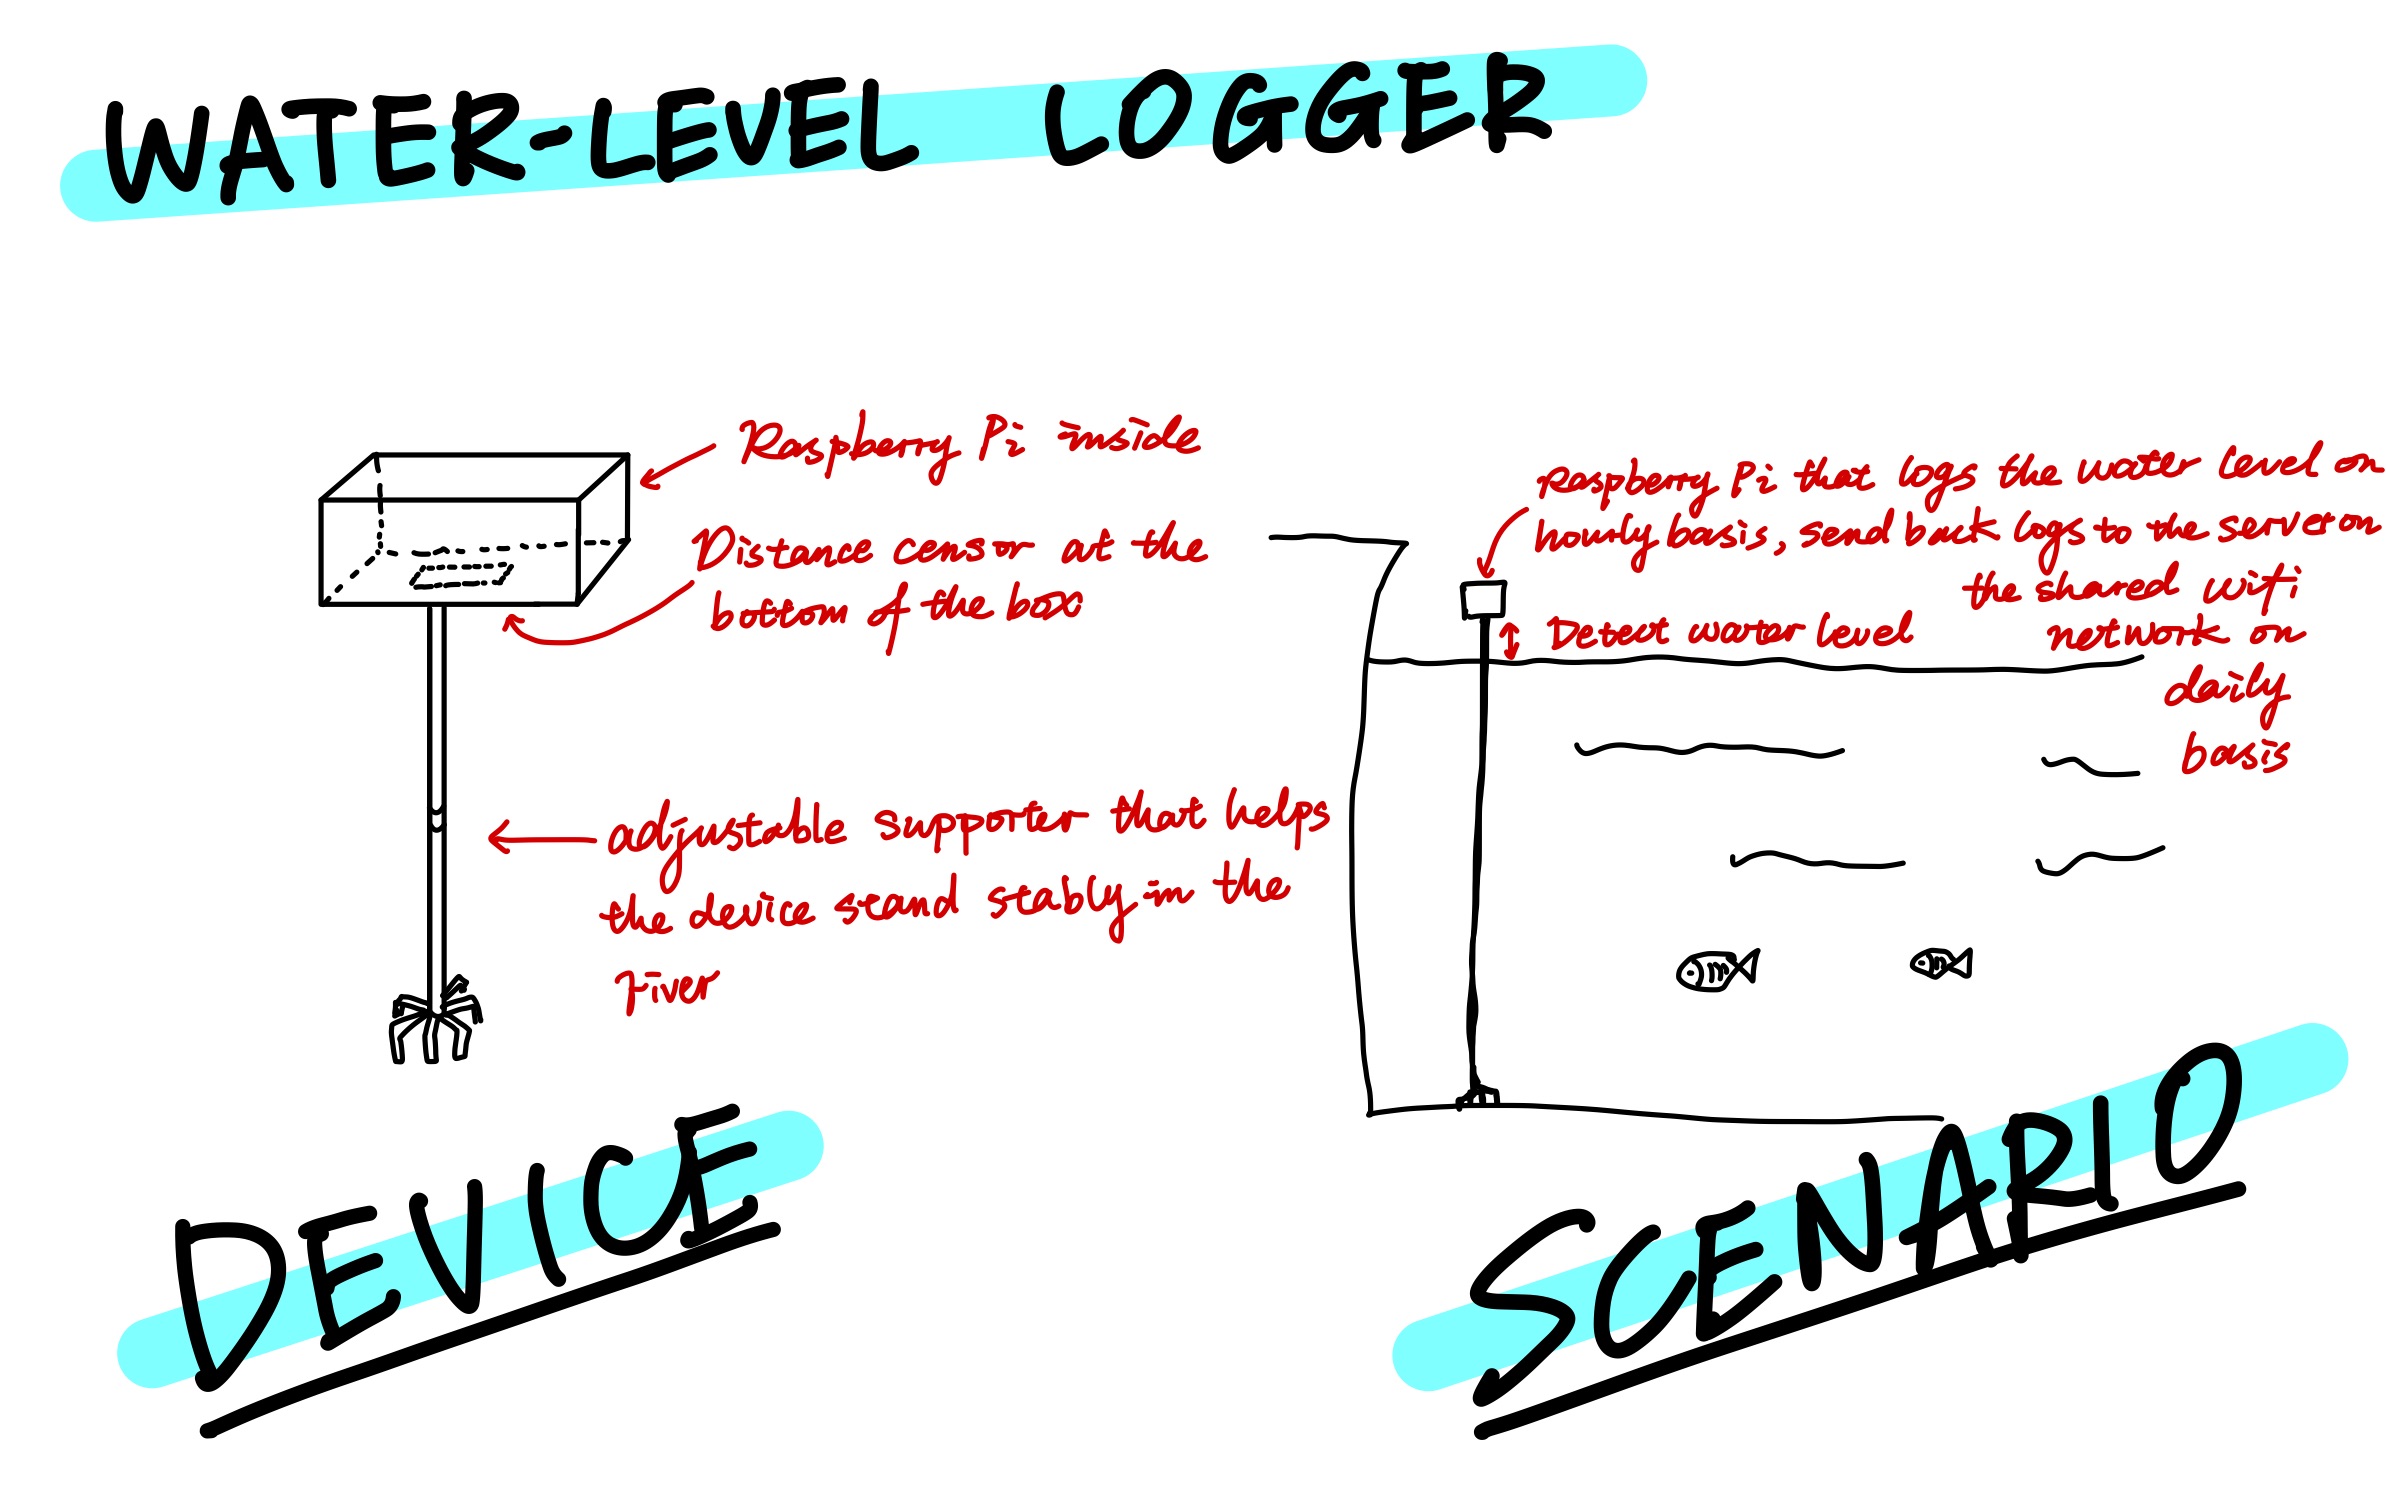 WATER-LEVEL LOGGER
Raspberry Pi inside
Distance censor at the
bottom of the box
adjustable supporter that helps
the device stand stably in the
river
DEVICE
raspberry Pi that logs the water level on
hourly basis, send back logs to the server on
the shared wifi
network on
daily
basis
Detect water level
SCENARIO